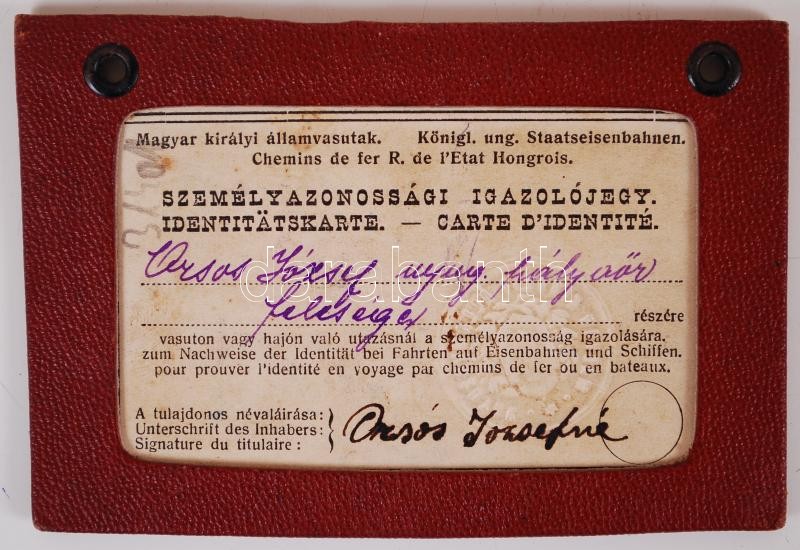 Magyar királyi államvasutak. Königl. ung. Staatseisenbahnen.
Chemins de fer R. de l'Etat Hongrois.
SZEMÉLYAZONOSSÁGI IGAZOLÓJEGY.
IDENTITÄTSKARTE. — CARTE D'IDENTITÉ.
Orsos József nyug. pályaőr
felesége
részére
vasuton vagy hajón való utazásnál a személyazonosság igazolására.
zum Nachweise der Identität bei Fahrten auf Eisenbahnen und Schiffen.
pour prouver l'identité en voyage par chemins de fer ou en bateaux.
A tulajdonos névaláirása:
Unterschrift des Inhabers:
Signature du titulaire:
Orsós Józsefné
darabanth